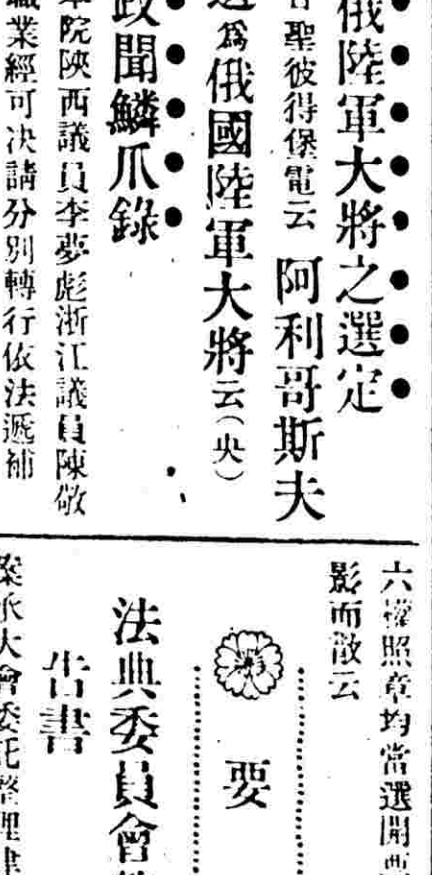 俄陸軍大將之選定
聖彼得堡電云 阿利哥斯夫
為俄國陸軍大將云（央）
政聞鱗爪錄
院陝西議員李夢彪浙江議員陳敬
職業經可决請分別轉行依法遞補
六 照章均當選開
影而散云
要
法典委員會
告書
案 大會委託整理